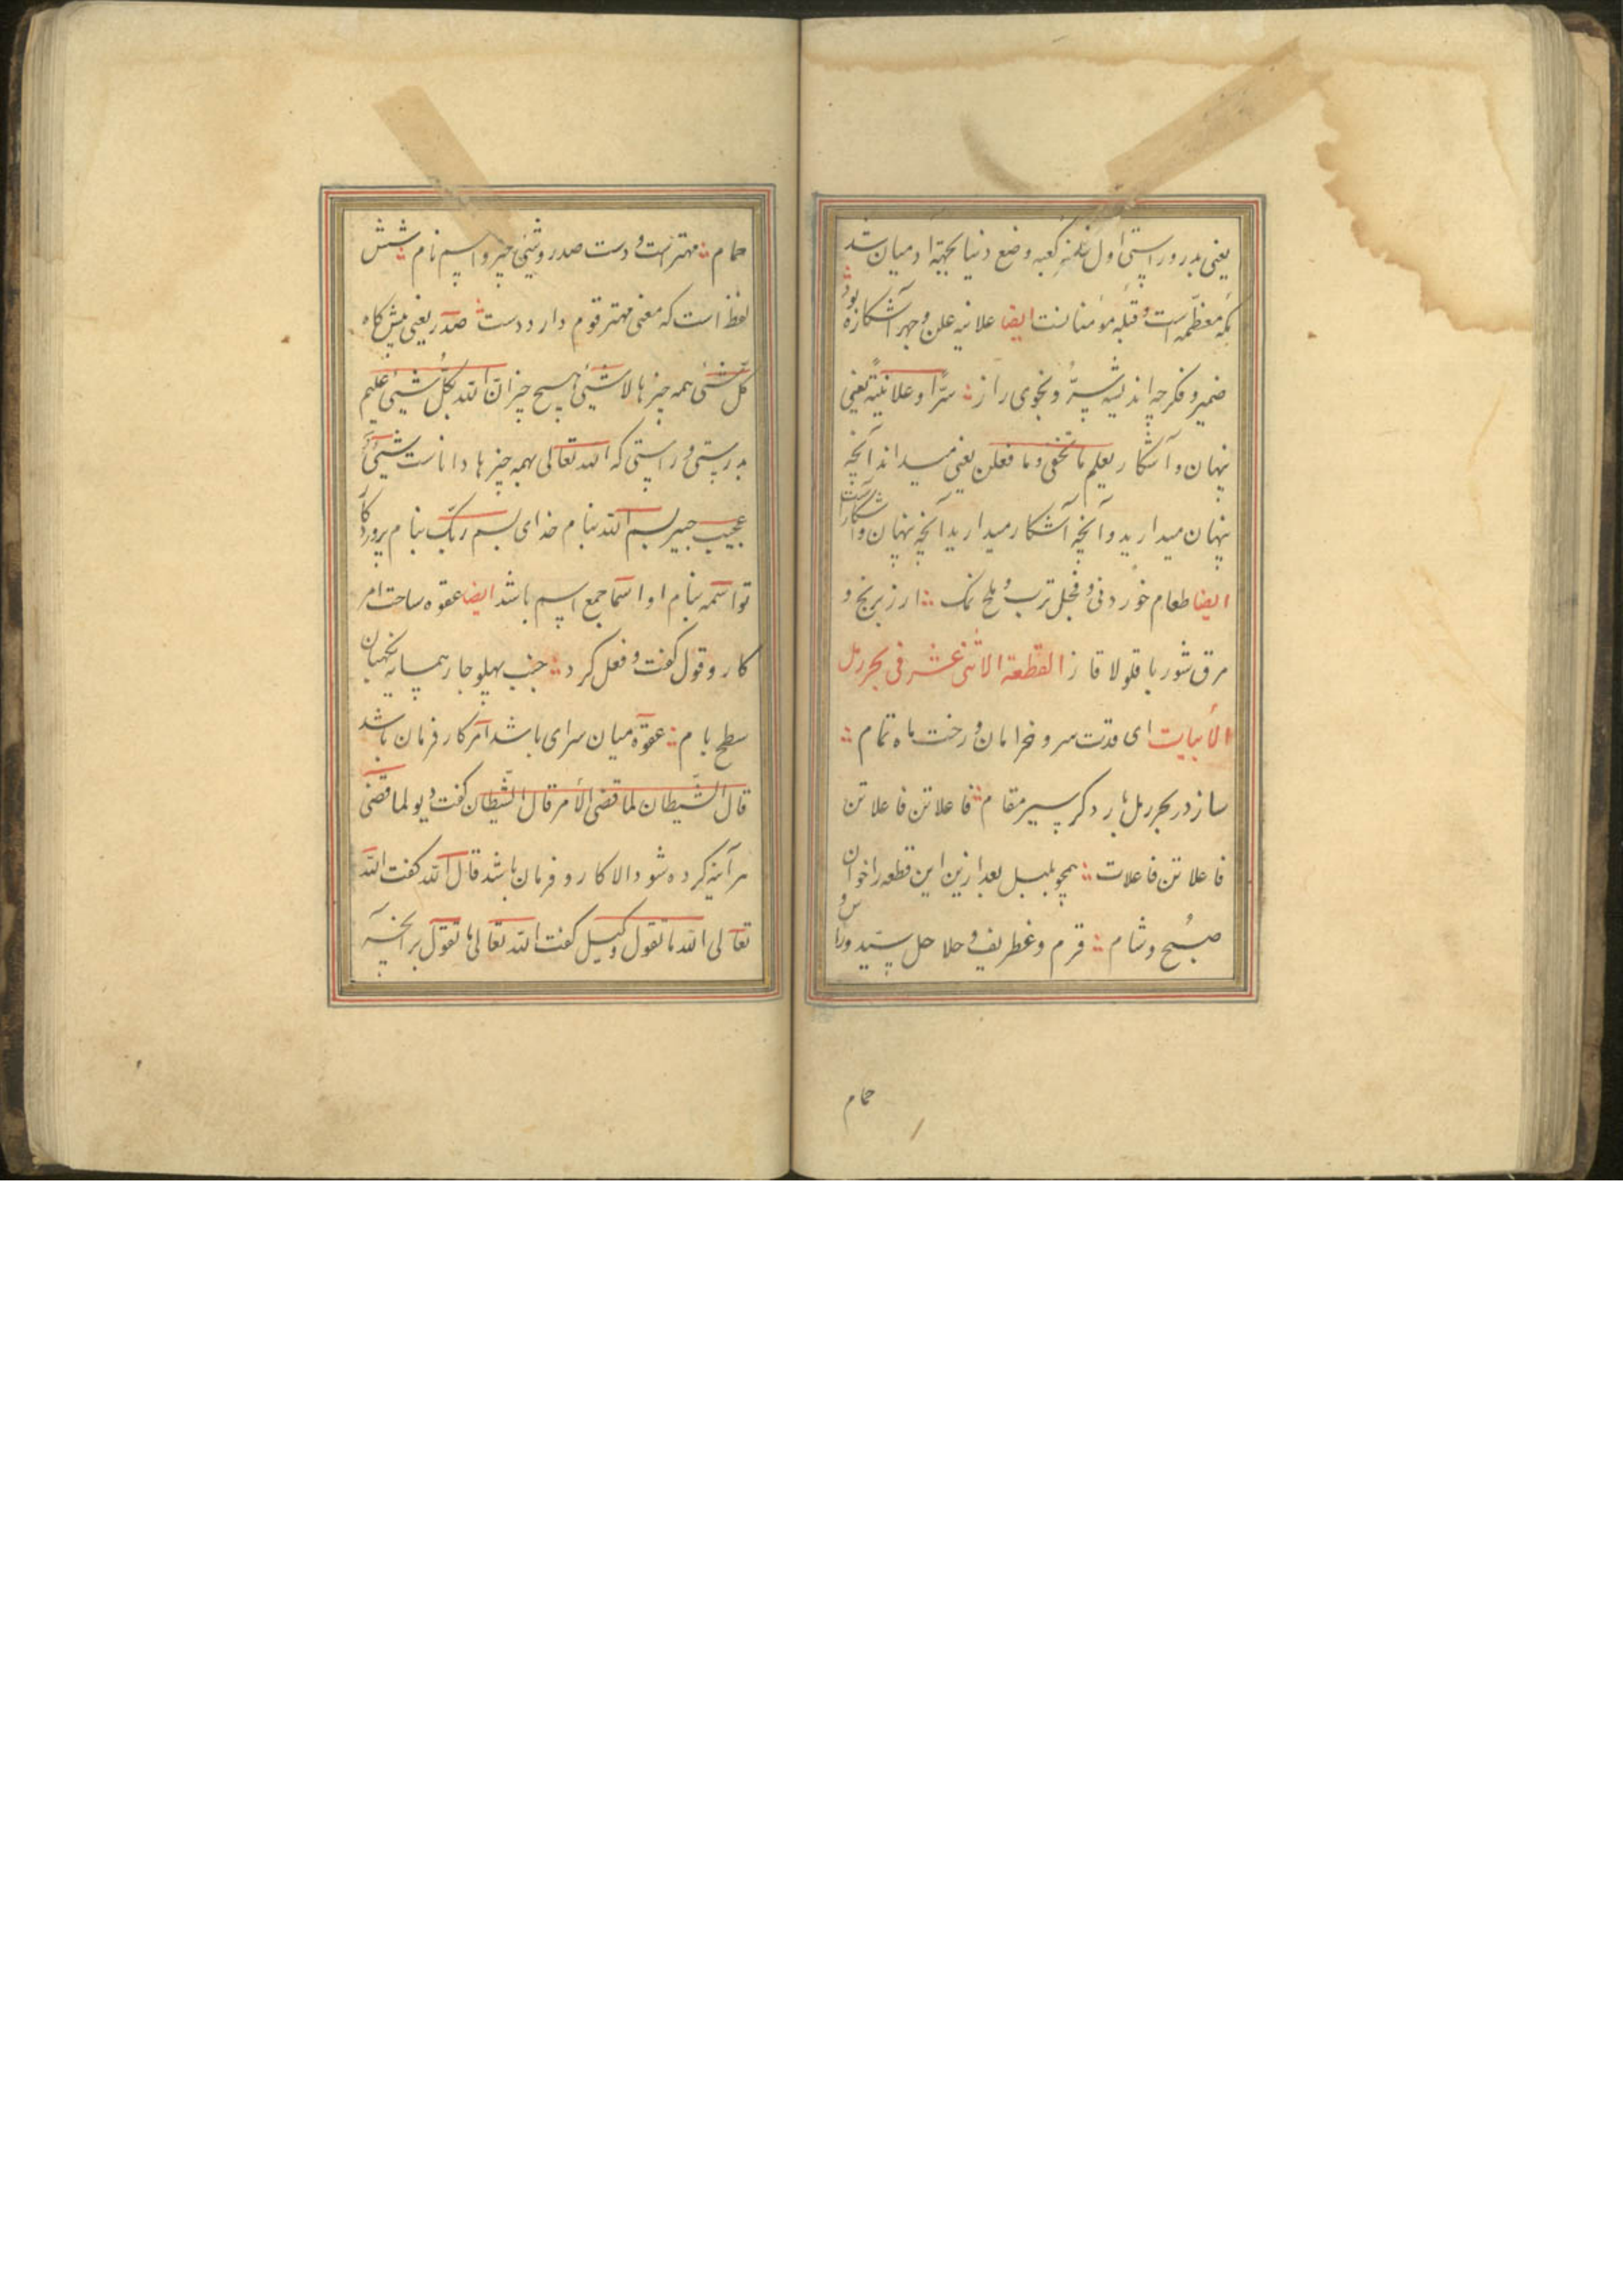 یعنی بدرو راستی اول خانه کعبه وضع دنیا بجهة ادمیان شد
بود
مکه معظمه است و قبله مؤمنانست ایضا علانیه علن و جهر آشکاره
ضمیر و فکر چه اندیشه سرّ و نجوی راز سرّا و علانیّتة یعنی
پنهان و آشکار یعلم ما تخفی و ما فعلن یعنی میداند آنچه
پنهان میدارید و آنچه آشکار میدارید آنچه پنهان و آشکار است
ایضا طعام خوردنی و فجل ترب و ملح نمک ارز برنج و
مرق شوربا قولا قاز القطعة الاثنی عشر فی بحر رمل
الأبیات ای قدت سرو خرامان و رخت ماه تمام
ساز در بحر رمل بار دکر سیر مقام فاعلاتن فاعلاتن
فاعلاتن فاعلات همچو بلبل بعد ازین این قطعه را خوان
صبح و شام قرم و غطریف و حلاحل سیّد و راس و
حمام
حمام مهتر است و دست صدر و شیئی چیز و اسم نام شش
لفظ است که معنی مهتر قوم دارد دست صدر یعنی پیش کاه
کلّ شیئی همه چیزها لا شیئی هیچ چیز انّ الله بکلّ شیئی علیم
بدرستی و راستی که الله تعالی بهمه چیزها داناست شیئی
عجیب بسم الله بنام خدای بسم ربّک بنام پروردکار
تو اسمه بنام او اسما جمع اسم باشد ایضا عقوه ساحت امر
کار و قول کفت و فعل کرد جنب پهلو جار همسایه
سطح بام عقوه میان سرای باشد امر کار فرمان باشد
قال الشّیطان لما قضی الأمر قال الشّیطان کفت دیو لما قضی
هر آینه کرده شود الا کار و فرمان باشد قال الله کفت الله
تعالی الله ما نقول وکیل کفت الله تعالی ما نقول بر آنچه